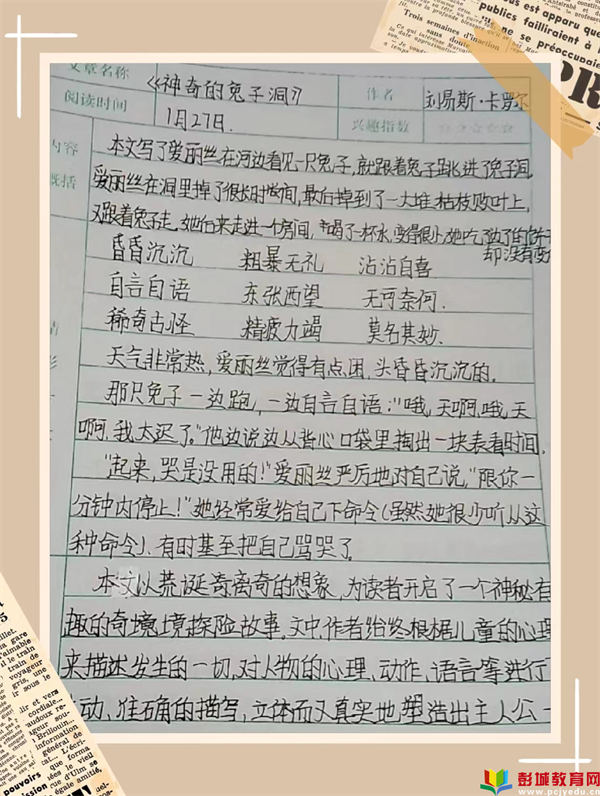 文章名称
《神奇的兔子洞》
作者
刘易斯·卡罗尔
阅读时间
1月27日.
兴趣指数
☆☆☆☆☆
内容
概括
本文写了爱丽丝在河边看见一只兔子,就跟着兔子跳进了兔子洞.
爱丽丝在洞里掉了很长时间,最后掉到了一大堆枯枝败叶上,
又跟着兔子走。她后来走进一个房间,喝了一杯水,变得很小,她吃了
却没有变
昏昏沉沉 粗暴无礼 沾沾自喜
自言自语 东张西望 无可奈何.
稀奇古怪 精疲力竭 莫名其妙.
天气非常热,爱丽丝觉得有点困,头昏昏沉沉的.
那只兔子一边跑,一边自言自语:"哦,天啊,哦,天
啊,我太迟了."他边说边从背心口袋里掏出一块表看时间.
"起来,哭是没用的!"爱丽丝严厉地对自己说,"限你一
分钟内停止!"她经常爱给自己下命令(虽然她很少听从这
种命令).有时甚至把自己骂哭了.
本文以荒诞离奇的想象,为读者开启了一个神秘有
趣的奇境境探险故事.文中,作者始终根据儿童的心理
来描述发生的一切,对人物的心理、动作、语言等进行
动、准确的描写,立体而又真实地塑造出主人公一
est apparu que
publics failliraient à
Trois semaines d'inaction
sans doute
ne se préoccupaient
PR
pouvoirs
彭城教育网
www.pcjyedu.cn